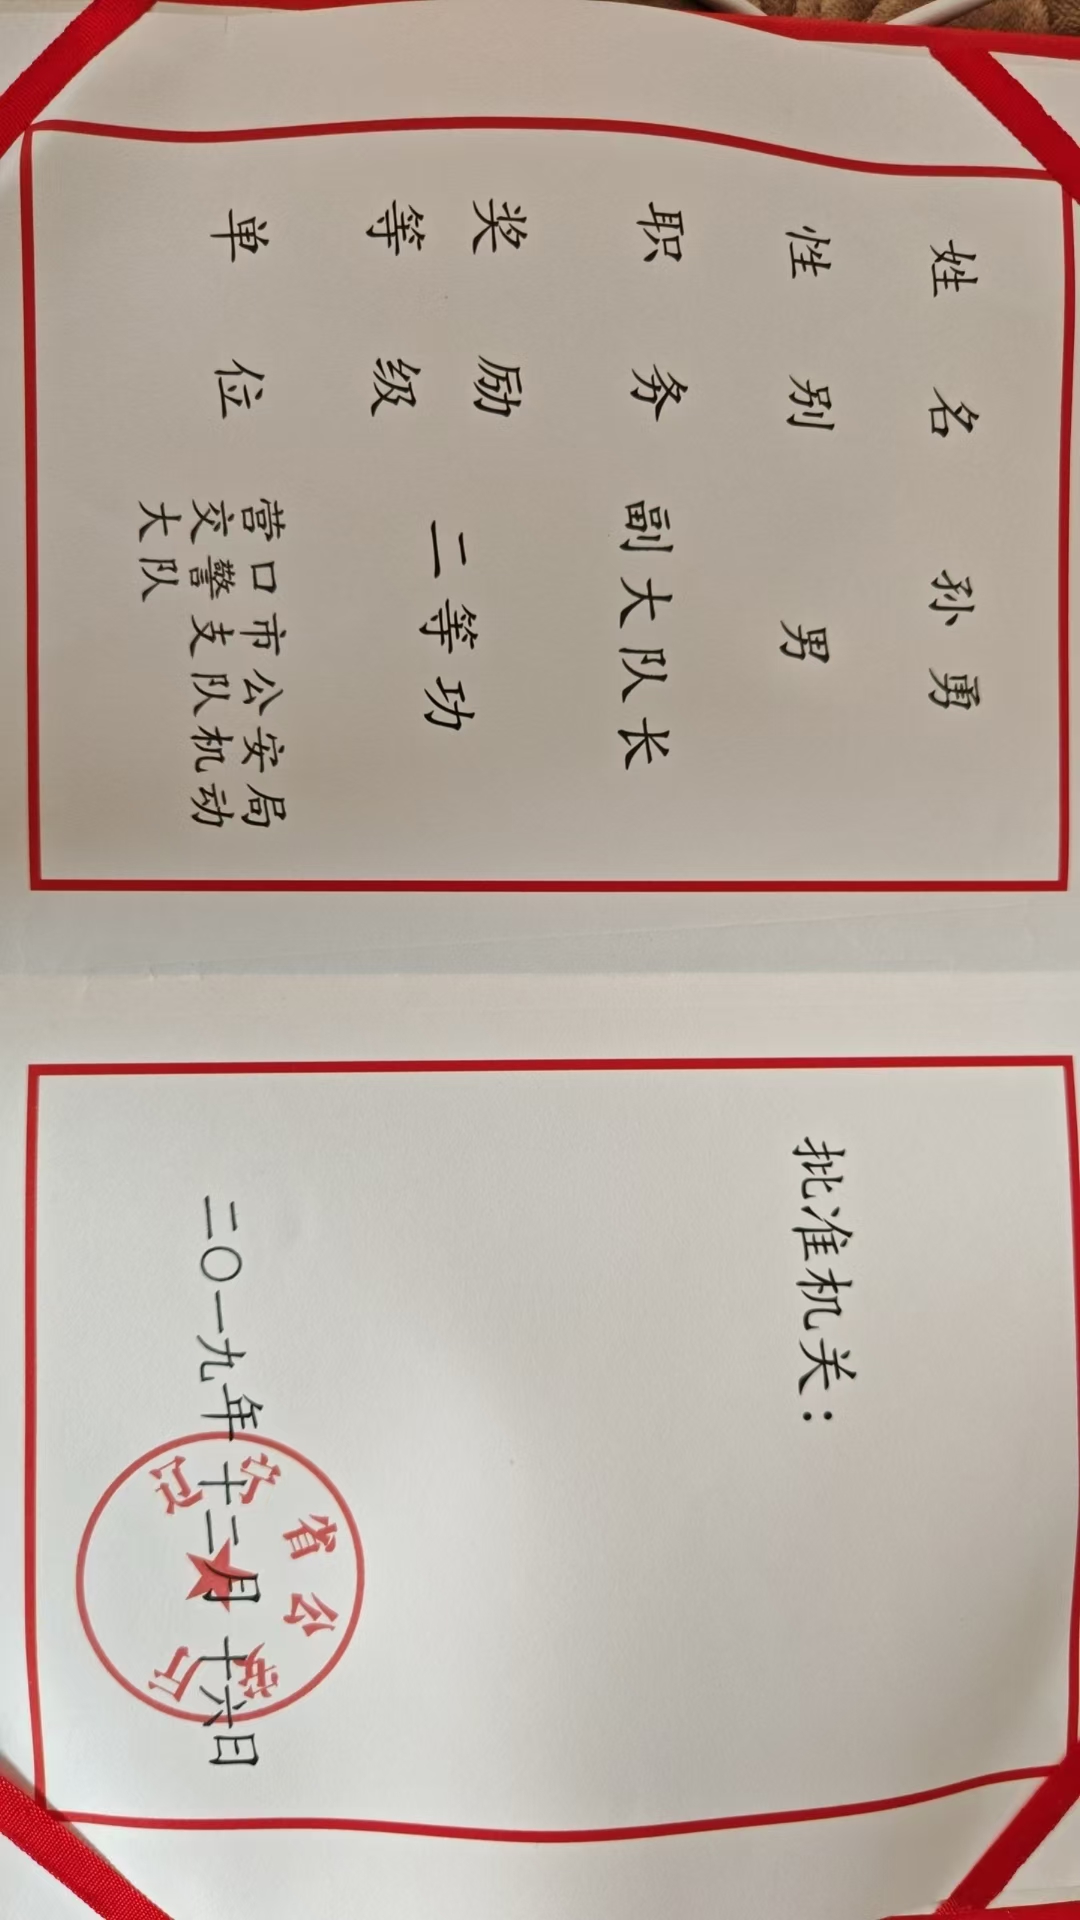 姓名 孙勇
性别 男
职务 副大队长
奖励
等级 二等功
单位 营口市公安局
交警支队机动
大队
批准机关：
二〇一九年十二月十六日
辽宁省公安厅